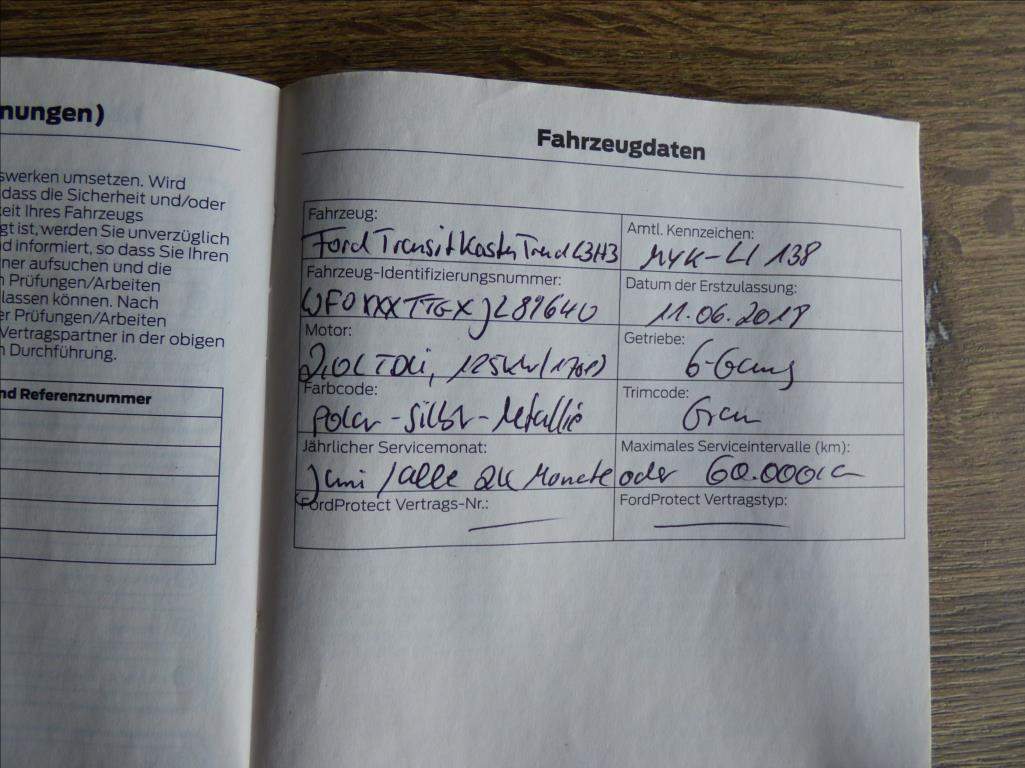 nungen)
swerken umsetzen. Wird
dass die Sicherheit und/oder
eit Ihres Fahrzeugs
gt ist, werden Sie unverzüglich
d informiert, so dass Sie Ihren
ner aufsuchen und die
n Prüfungen/Arbeiten
lassen können. Nach
er Prüfungen/Arbeiten
Vertragspartner in der obigen
n Durchführung.
nd Referenznummer
Fahrzeugdaten
Fahrzeug:
Ford Transit Kasten Trend L3H3
Amtl. Kennzeichen:
MYK-LI 138
Fahrzeug-Identifizierungsnummer:
WF0XXXTTGXJL81640
Datum der Erstzulassung:
11.06.2018
Motor:
2,0L TDCi, 125kW (170PS)
Getriebe:
6-Gang
Farbcode:
Polar-Silber-Metallic
Trimcode:
Grau
Jährlicher Servicemonat:
Juni / alle 24 Monate oder
Maximales Serviceintervalle (km):
60.000km
FordProtect Vertrags-Nr.:
FordProtect Vertragstyp: